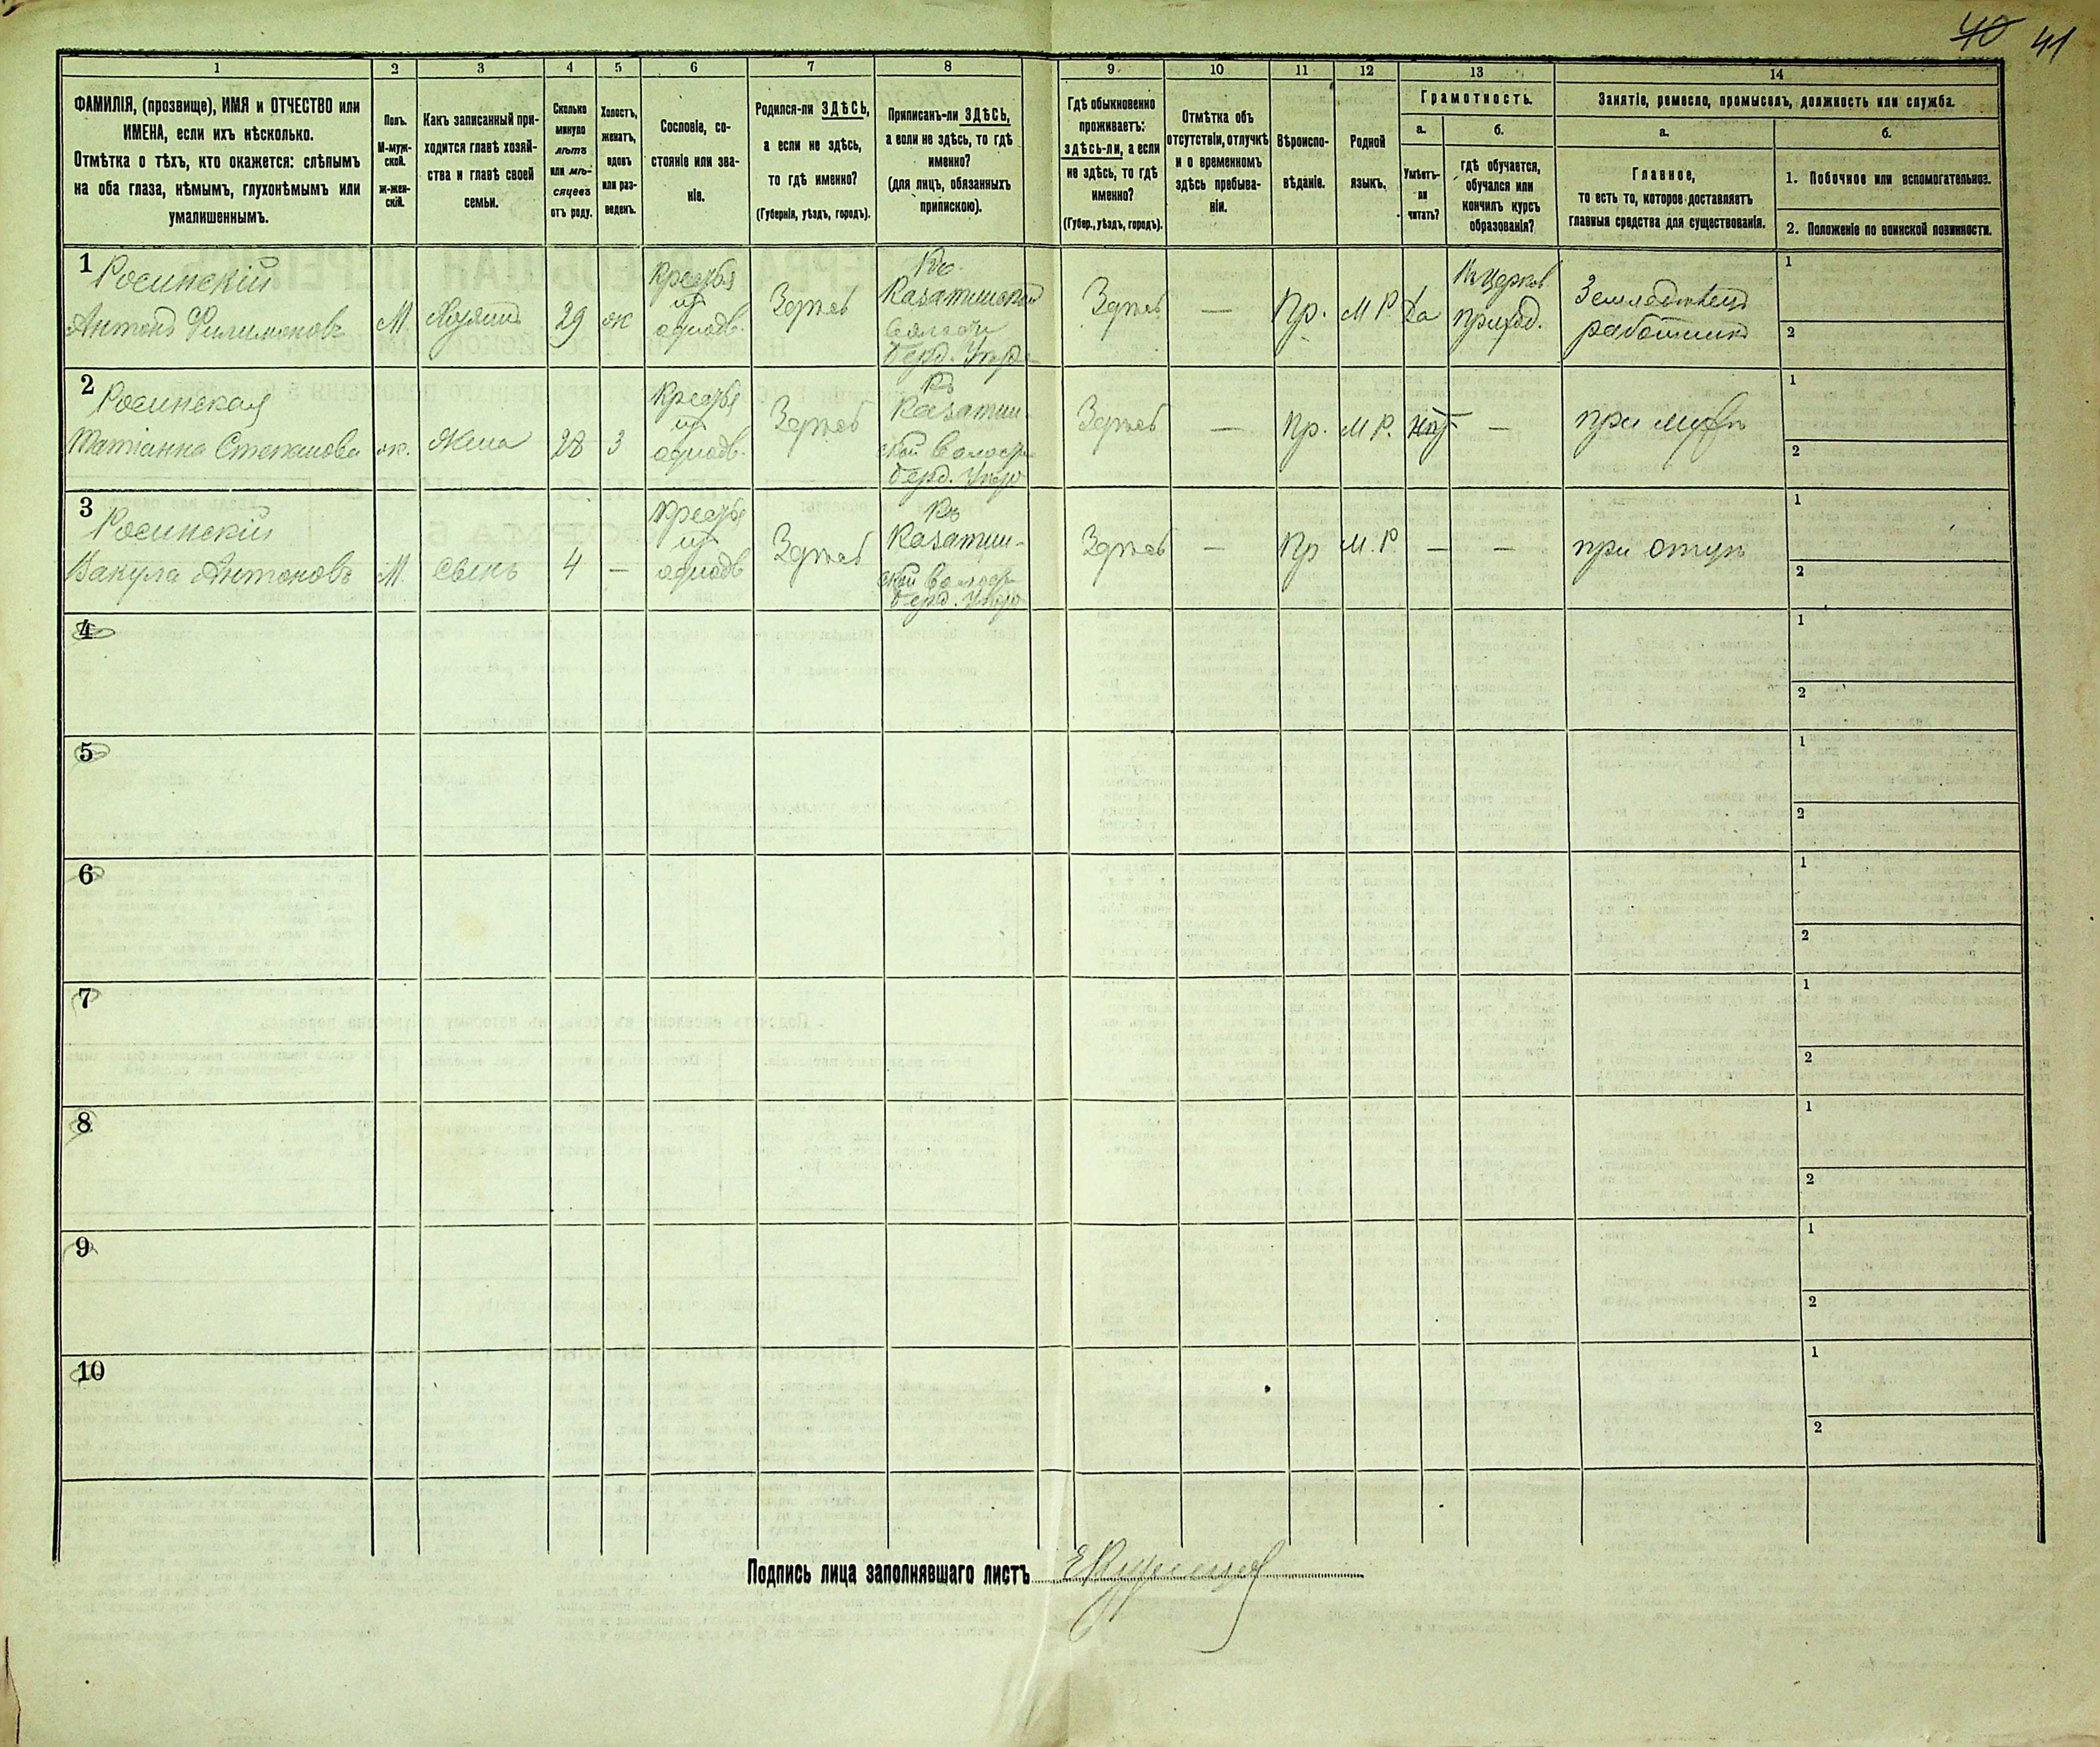 40 41
1 2 3 4 5 6 7 8 9 10 11 12 13 14
ФАМИЛІЯ, (прозвище), ИМЯ и ОТЧЕСТВО или
ИМЕНА, если ихъ нѣсколько.
Отмѣтка о тѣхъ, кто окажется: слѣпымъ
на оба глаза, нѣмымъ, глухонѣмымъ или
умалишеннымъ.
Полъ.
М-муж-
ской.
ж-жен-
скій.
Какъ записанный при-
ходится главѣ хозяй-
ства и главѣ своей
семьи.
Сколько
минуло
лѣтъ
или мѣ-
сяцевъ
отъ роду.
Холостъ,
женатъ,
вдовъ
или раз-
веденъ.
Сословіе, со-
стояніе или зва-
ніе.
Родился-ли ЗДѢСЬ,
а если не здѣсь,
то гдѣ именно?
(Губернія, уѣздъ, городъ).
Приписанъ-ли ЗДѢСЬ,
а если не здѣсь, то гдѣ
именно?
(для лицъ, обязанныхъ
припискою).
Гдѣ обыкновенно
проживаетъ:
здѣсь-ли, а если
не здѣсь, то гдѣ
именно?
(Губер., уѣздъ, городъ).
Отмѣтка объ
отсутствіи, отлучкѣ
и о временномъ
здѣсь пребыва-
ніи.
Вѣроиспо-
вѣданіе.
Родной
языкъ.
Грамотность.
а.
Умѣетъ-
ли
читать?
б.
гдѣ обучается,
обучался или
кончилъ курсъ
образованія?
Занятіе, ремесло, промыселъ, должность или служба.
а.
Главное,
то есть то, которое доставляетъ
главныя средства для существованія.
б.
1. Побочное или вспомогательное.
2. Положеніе по воинской повинности.
1
Росинскій
Антонъ Филимоновъ
М.
Хозяинъ
29
ж
Здѣсь
Къ
Казатинской
Волости
Берд.
Здѣсь
—
Пр.
М Р
Да
приход.
Земледѣлецъ
работникъ
1
2
2
Росинская
Татіанна Степанова
ж.
Жена
28
З
Здѣсь
Къ
Казатин-
ской
Берд.
Здѣсь
—
Пр.
М Р.
нѣт
—
при мужѣ
1
2
3
Росинскій
Вакула Антоновъ
М.
Сынъ
4
—
Здѣсь
Къ
Казатин-
ской
Берд.
Здѣсь
—
Пр
М. Р.
—
—
при отцѣ
1
2
4
1
2
5
1
2
6
1
2
7
1
2
8
1
2
9
1
2
10
1
2
Подпись лица заполнявшаго листъ